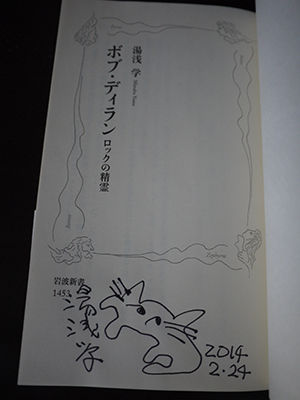 湯浅 学
Manabu Yuasa
ボブ・ディラン
ロックの精霊
Zephyros
岩波新書
1453
湯浅学
2014
2.24